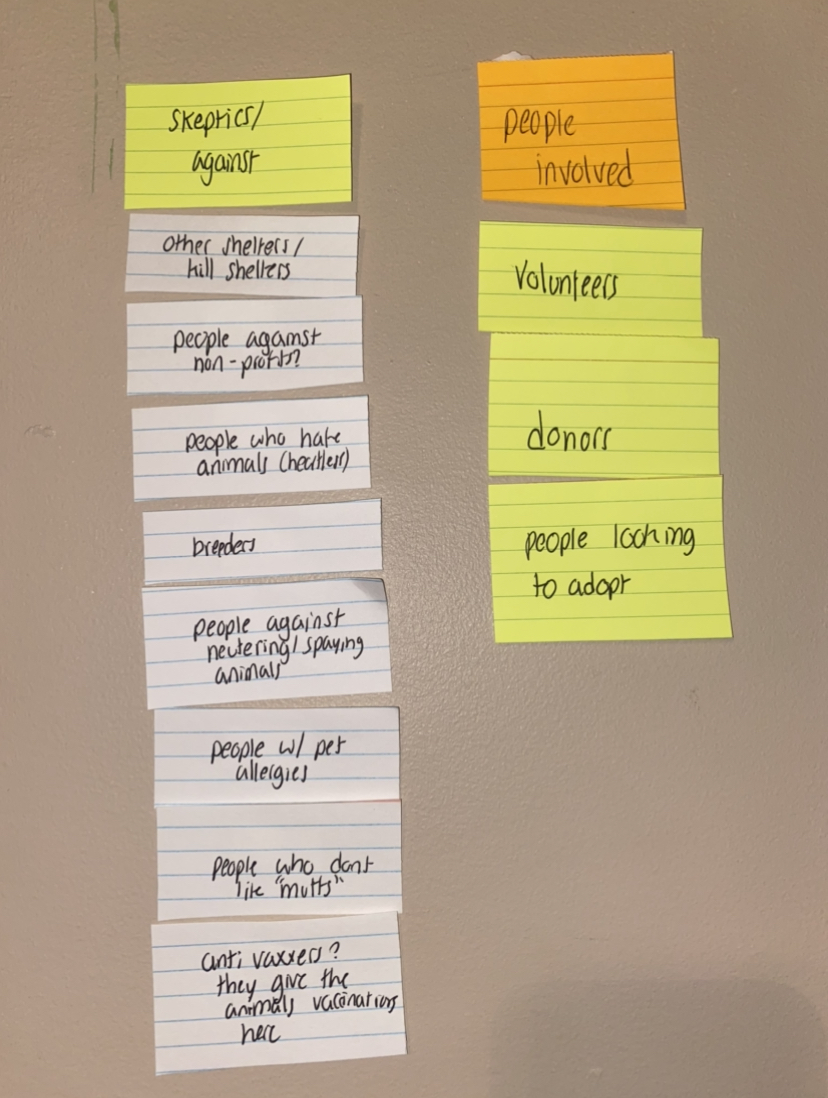 skeptics/
against
other shelters/
kill shelters
people against
non-profits?
people who hate
animals (heartless)
breeders
people against
neutering/spaying
animals
people w/ pet
allergies
people who dont
like "mutts"
anti vaxxers?
they give the
animals vaccinations
here
people
involved
Volunteers
donors
people looking
to adopt